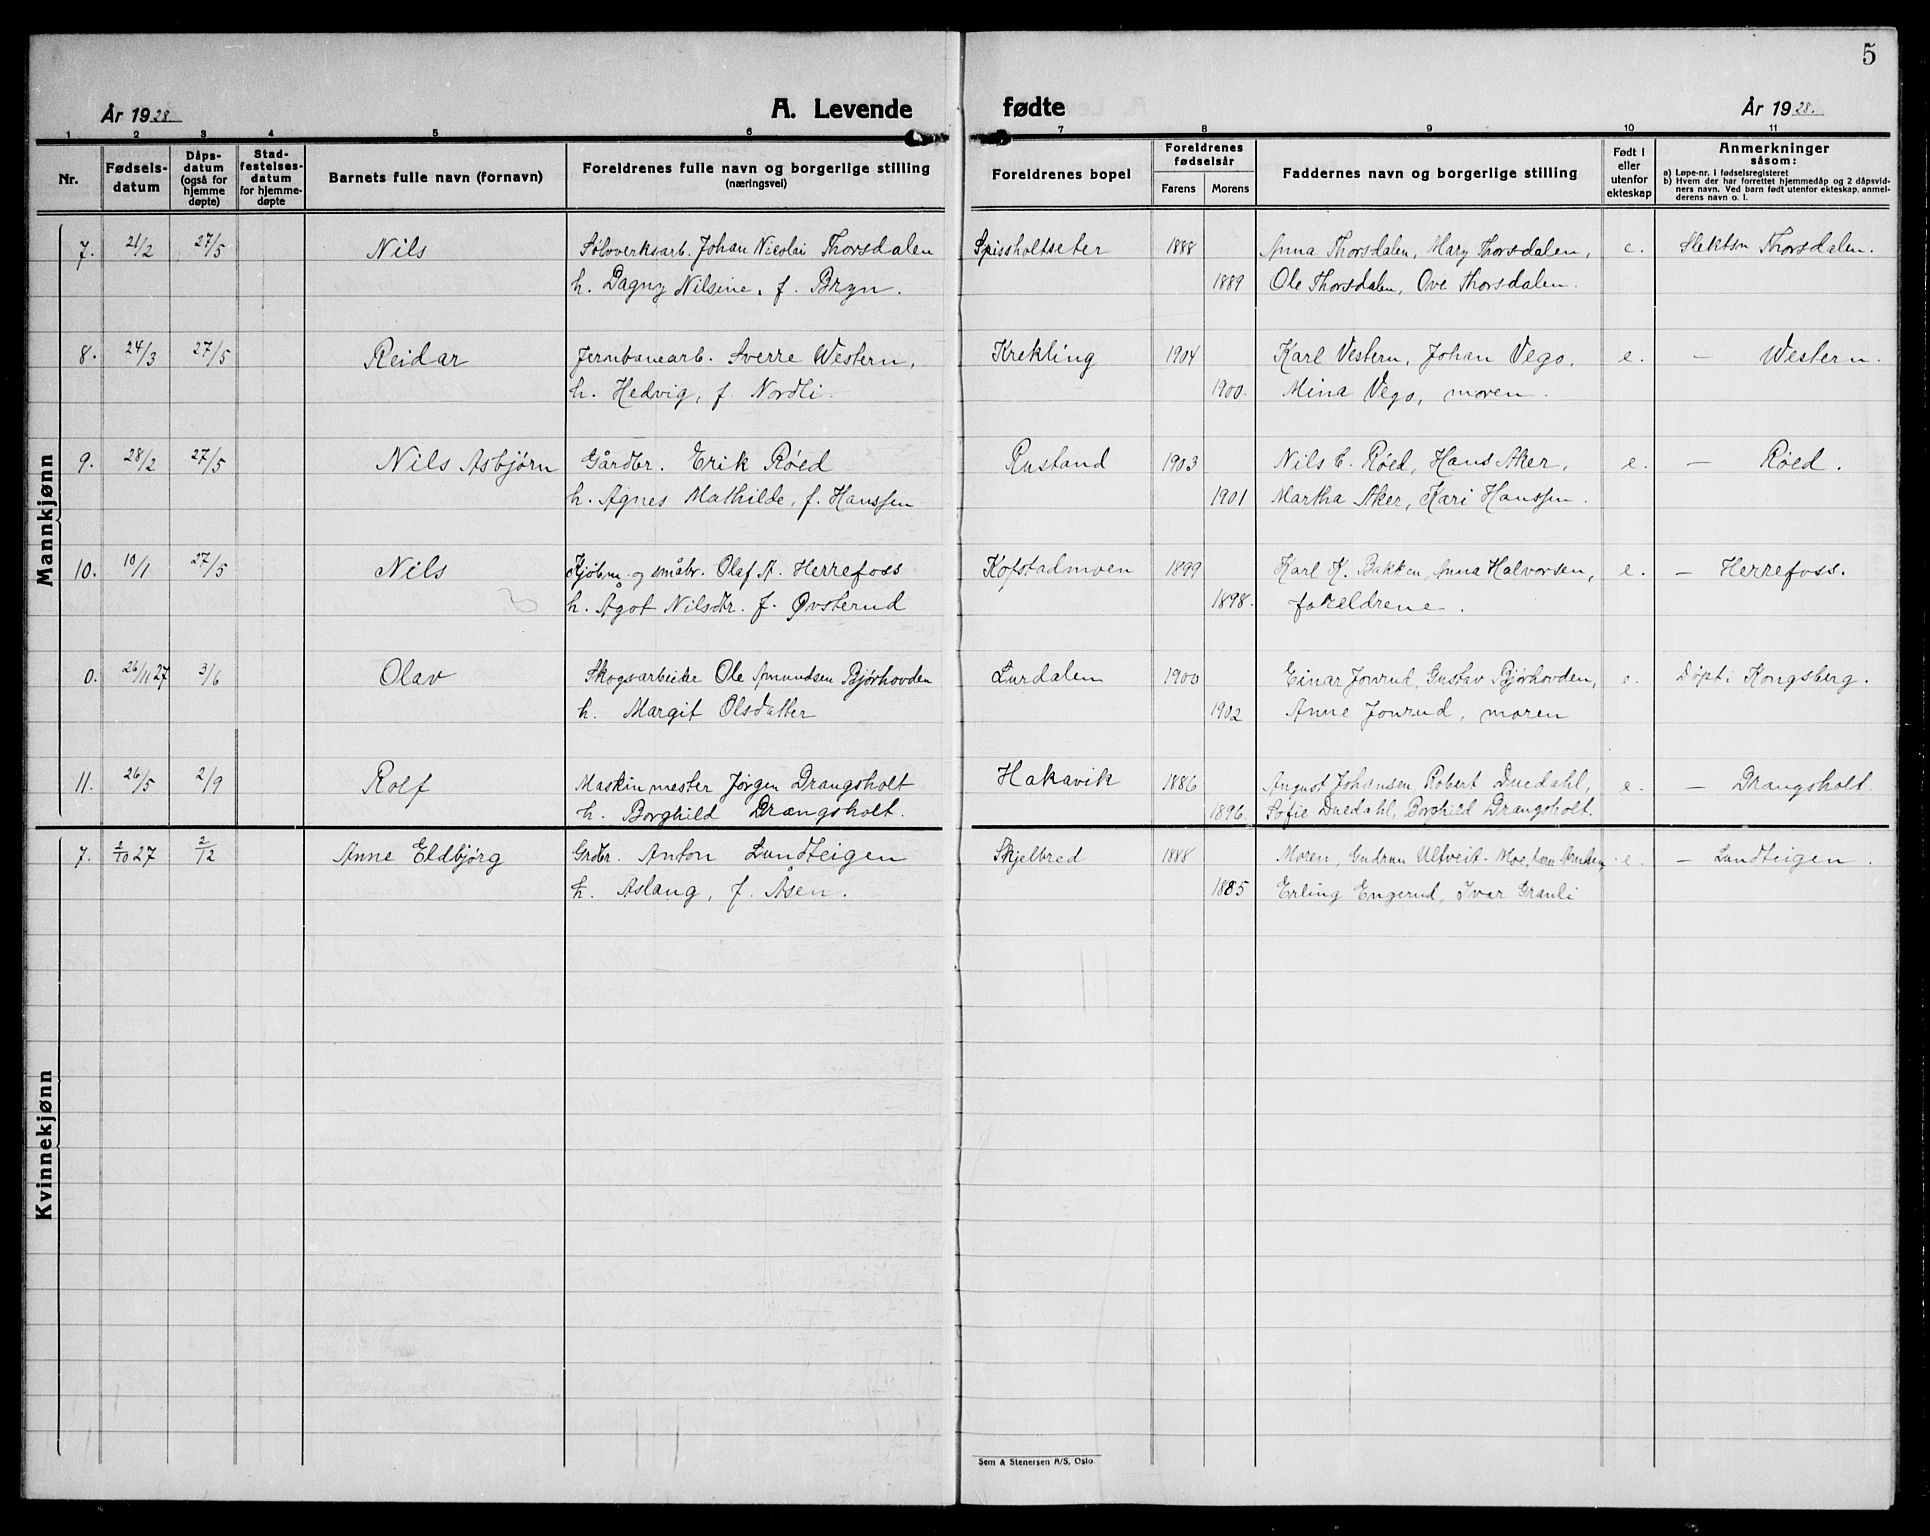 5
År 1928
A. Levende
fødte
År 1928.
1 2 3 4 5 6 7 8 9 10 11
Nr.
Fødselsdatum
Dåpsdatum (også for hjemmedøpte)
Stadfestelsesdatum for hjemmedøpte
Barnets fulle navn (fornavn)
Foreldrenes fulle navn og borgerlige stilling
(næringsvei)
Foreldrenes bopel
Foreldrenes fødselsår
Farens Morens
Faddernes navn og borgerlige stilling
Født i eller utenfor ekteskap
Anmerkninger
såsom:
a) Løpe-nr. i fødselsregisteret
b) Hvem der har forrettet hjemmedåp og 2 dåpsvidners navn. Ved barn født utenfor ekteskap, anmelderens navn o. l.
Mannkjønn
7. 21/2 27/5 Nils Sølvverksarb. Johan Nicolai Thorsdalen Spissholtseter 1888 Anna Thorsdalen, Mary Thorsdalen, e. Slektsn Thorsdalen.
h. Dagny Nilsine, f. Bryn. 1889 Ole Thorsdalen, Ove Thorsdalen.
8. 24/3 27/5 Reidar Jernbanearb. Sverre Western, Krekling 1904 Karl Vestern, Johan Vego, e. — Western.
h. Hedvig, f. Nordli. 1900. Mina Vego, moren.
9. 28/2 27/5 Nils Asbjørn Gårdbr. Erik Røed Rustand 1903 Nils E. Røed, Hans Aker, e. — Røed.
h. Agnes Mathilde, f. Hanssen 1901 Martha Aker, Kari Hanssen.
10. 10/1 27/5 Nils Kjøbm. og småbr. Olaf A. Herrefoss Kofstadmoen 1899 Karl K. Bakken, Anna Halvorsen, e. — Herrefoss.
h. Ågot Nilsdtr. f. Øvsterud 1898. foreldrene.
0. 26/11 27 3/6 Olav Skogsarbeider Ole Amundsen Bjørhovden Lurdalen 1900 Einar Jonrud, Gustav Bjørhovden, e. Døpt i Kongsberg.
h. Margit Olsdatter 1902 Anne Jonrud, moren
11. 26/5 2/9 Rolf Maskinmester Jørgen Drangsholt Hakavik 1886 August Johansen, Robert Duedahl, e. — Drangsholt.
h. Borghild Drangsholt. 1896. Sofie Duedahl, Borghild Drangsholt.
Kvinnekjønn
7. 2/10 27 2/12 Anne Eldbjørg Grdbr. Anton Lundteigen Skjelbred 1888 Moren, Gudrun Ultveit-Moe, e. — Lundteigen.
h. Aslaug, f. Åsen. 1885 Erling Engerud, Ivar Granli
Sem & Stenersen A/S, Oslo